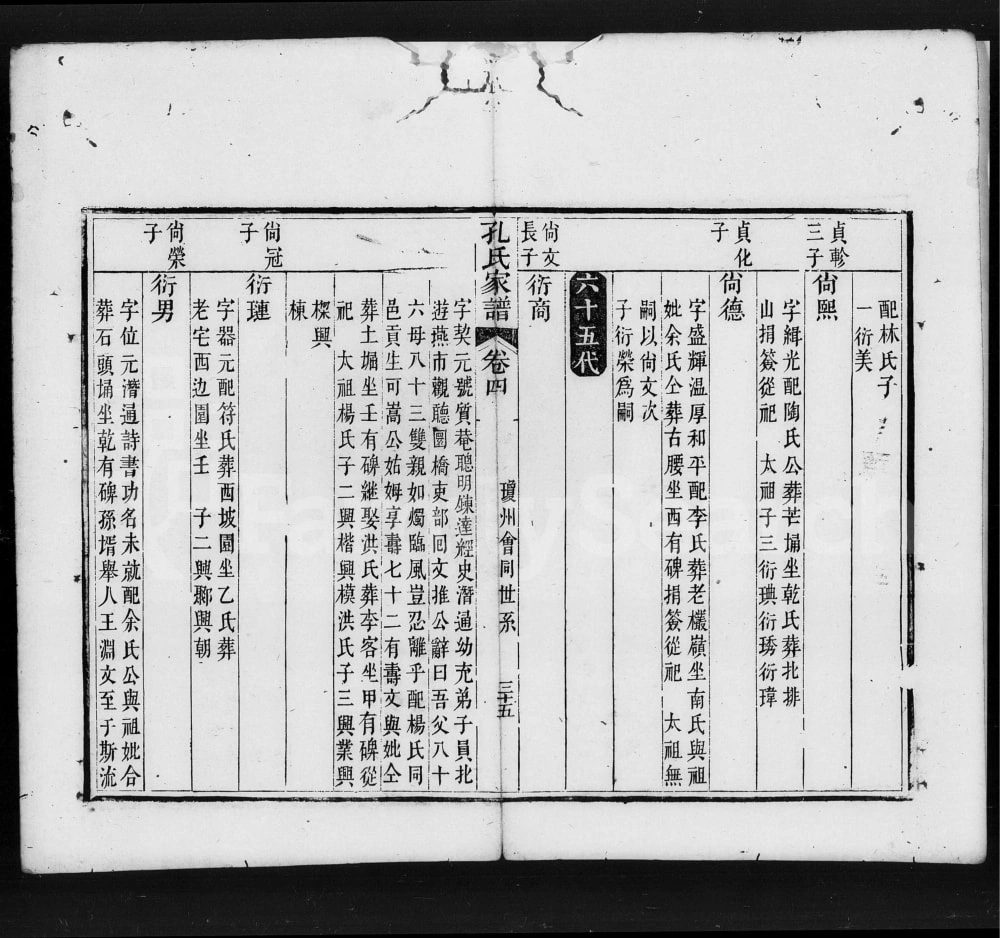 配林氏子
一衍美
貞軫
三子
尙熙
字緝光配陶氏公葬芒塘坐乾氏葬北排
山捐簽從祀 太祖子三衍琠衍琇衍瑋
貞化
子
尙德
字盛輝温厚和平配李氏葬老欐嶺坐南氏與祖
妣余氏仝葬古腰坐西有碑捐簽從祀 太祖無
嗣以尙文次
子衍榮爲嗣
六十五代
尙文
長子
衍商
孔氏家譜 卷四 瓊州會同世系 三十五
字契元號質菴聰明鍊達經史潛通幼充弟子員北
遊燕市觀聽圜橋吏部回文推公辭曰吾父八十
六母八十三雙親如燭臨風豈忍離乎配楊氏同
邑貢生可嵩公姑姆享壽七十二有壽文與妣仝
葬土堀坐壬有碑繼娶洪氏葬李客坐甲有碑從
祀 太祖楊氏子二興楷興模洪氏子三興業興
檪興
棟
尙冠
子
衍璉
字器元配符氏葬西坡園坐乙氏葬
老宅西边園坐壬 子二興鄹興朝
尙榮
子
衍男
字位元潛通詩書功名未就配余氏公與祖妣合
葬石頭塘坐乾有碑孫壻舉人王淵文至于斯流